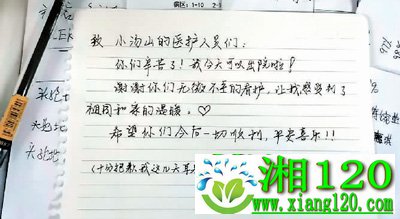 致 小汤山的医护人员们:
你们辛苦了!我今天可以出院啦!
谢谢你们无微不至的看护,让我感受到了
祖国和家的温暖。♡
希望你们今后一切顺利,平安喜乐!!
(十分抱歉我这几天
湘120
www.xiang120.com